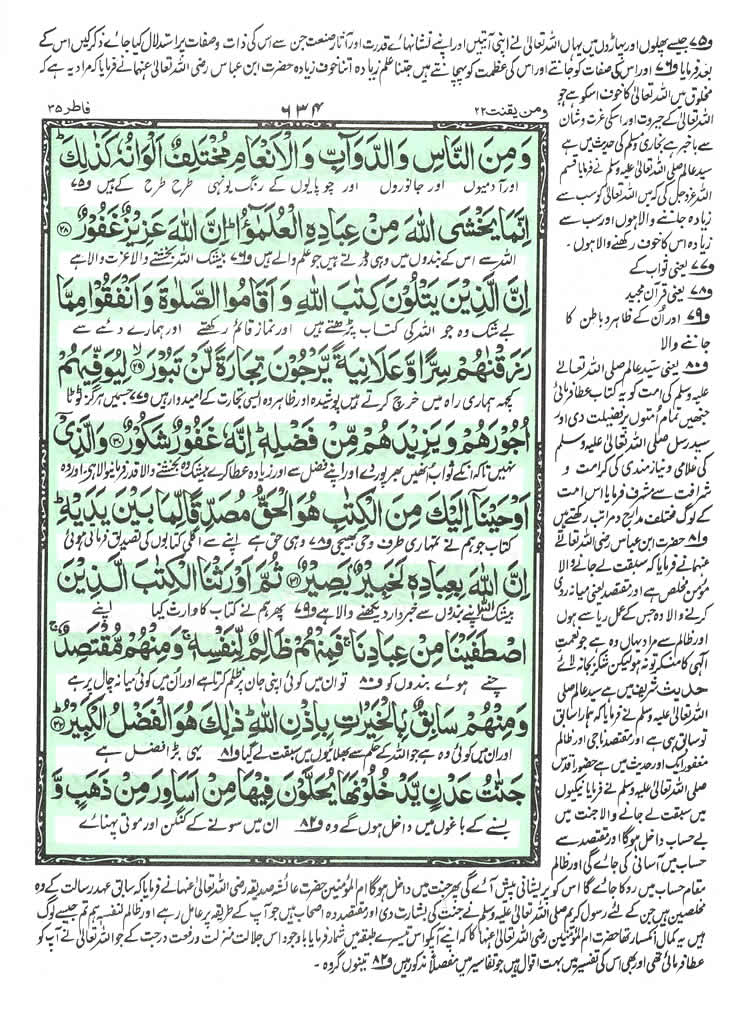 ف۷۵ جیسے پھلوں اور پہاڑوں میں یہاں اللہ تعالیٰ نے اپنی آیتیں اور اپنے نشانہائے قدرت اور آثار صنعت جن سے اس کی ذات و صفات پر استدلال کیا جائے ذکر کیں اس کے
بعد فرمایا ف۷۶ اور اس کی صفات کو جانتے اور اس کی عظمت کو پہچانتے ہیں جتنا علم زیادہ اتنا خوف زیادہ حضرت ابن عباس رضی اللہ تعالیٰ عنہما نے فرمایا کہ مراد یہ ہے کہ
ومن یقنت ۲۲
۶۳۴
فاطر ۳۵
مخلوق میں اللہ تعالیٰ کا خوف اسکو ہے جو
اللہ تعالیٰ کے جبروت اور اسکی عزت و شان
سے باخبر ہے بخاری و مسلم کی حدیث میں ہے
سید عالم صلی اللہ تعالیٰ علیہ وسلم نے فرمایا قسم
اللہ عزوجل کی کہ میں اللہ تعالیٰ کو سب سے
زیادہ جاننے والا ہوں اور سب سے
زیادہ اس کا خوف رکھنے والا ہوں ۔
ف۷۷ یعنی ثواب کے
ف۷۸ یعنی قرآن مجید
ف۷۹ اور اُن کے ظاہر و باطن کا
جاننے والا
ف۸۰ یعنی سید عالم صلی اللہ تعالیٰ
علیہ وسلم کی امت کو یہ کتاب عطا فرمائی
جنھیں تمام اُمتوں پر فضیلت دی اور
سید رسل صلی اللہ تعالیٰ علیہ وسلم
کی غلامی و نیاز مندی کی کرامت و
شرافت سے مشرف فرمایا اس امت
کے لوگ مختلف مدارج و مراتب رکھتے ہیں
ف۸۱ حضرت ابن عباس رضی اللہ تعالیٰ
عنہما نے فرمایا کہ سبقت لے جانے والا
مؤمن مخلص ہے اور مقتصد یعنی میانہ روی
کرنے والا وہ جس کے عمل ریا سے ہوں
اور ظالم سے مراد یہاں وہ ہے جو نعمت
الٰہی کا منکر تو نہ ہو لیکن شکر بجا نہ لائے
حدیث شریف میں ہے سید عالم صلی
اللہ تعالیٰ علیہ وسلم نے فرمایا کہ ہمارا سابق
تو سابق ہی ہے اور مقتصد ناجی اور ظالم
مغفور ایک اور حدیث میں ہے حضور اقدس
صلی اللہ تعالیٰ علیہ وسلم نے فرمایا نیکیوں
میں سبقت لے جانے والا جنت میں
بے حساب داخل ہوگا اور مقتصد سے
حساب میں آسانی کی جائے گی اور ظالم
وَمِنَ النَّاسِ وَالدَّوَآبِّ وَالْاَنْعَامِ مُخْتَلِفٌ اَلْوَانُهٗ كَذٰلِكَ ؕ
اور آدمیوں اور جانوروں اور چوپایوں کے رنگ یونہی طرح طرح کے ہیں ف۷۵
اِنَّمَا يَخْشَى اللّٰهَ مِنْ عِبَادِهِ الْعُلَمٰٓؤُا ؕ اِنَّ اللّٰهَ عَزِيْزٌ غَفُوْرٌ ﴿۲۸﴾
اللہ سے اس کے بندوں میں وہی ڈرتے ہیں جو علم والے ہیں ف۷۶ بیشک اللہ بخشنے والا عزت والا ہے
اِنَّ الَّذِيْنَ يَتْلُوْنَ كِتٰبَ اللّٰهِ وَاَقَامُوا الصَّلٰوةَ وَاَنْفَقُوْا مِمَّا
بے شک وہ جو اللہ کی کتاب پڑھتے ہیں اور نماز قائم رکھتے اور ہمارے دئیے سے
رَزَقْنٰهُمْ سِرًّا وَّعَلَانِيَةً يَّرْجُوْنَ تِجَارَةً لَّنْ تَبُوْرَ ﴿۲۹﴾ لِيُوَفِّيَهُمْ
کچھ ہماری راہ میں خرچ کرتے ہیں پوشیدہ اور ظاہر وہ ایسی تجارت کے امیدوار ہیں ف۷۷ جس میں ہرگز ٹوٹا
اُجُوْرَهُمْ وَيَزِيْدَهُمْ مِّنْ فَضْلِهٖ ؕ اِنَّهٗ غَفُوْرٌ شَكُوْرٌ ﴿۳۰﴾ وَالَّذِيْٓ
نہیں تاکہ انکے ثواب انھیں بھرپور دے اور اپنے فضل سے اور زیادہ عطا کرے بیشک وہ بخشنے والا قدر فرمانیوالا ہے اور وہ
اَوْحَيْنَآ اِلَيْكَ مِنَ الْكِتٰبِ هُوَ الْحَقُّ مُصَدِّقًا لِّمَا بَيْنَ يَدَيْهِ ؕ
کتاب جو ہم نے تمہاری طرف وحی بھیجی ف۷۸ وہی حق ہے اپنے سے اگلی کتابوں کی تصدیق فرماتی ہوئی
اِنَّ اللّٰهَ بِعِبَادِهٖ لَخَبِيْرٌۢ بَصِيْرٌ ﴿۳۱﴾ ثُمَّ اَوْرَثْنَا الْكِتٰبَ الَّذِيْنَ
بیشک اللہ اپنے بندوں سے خبردار دیکھنے والا ہے ف۷۹ پھر ہم نے کتاب کا وارث کیا اپنے
اصْطَفَيْنَا مِنْ عِبَادِنَا ۚ فَمِنْهُمْ ظَالِمٌ لِّنَفْسِهٖ ۚ وَمِنْهُمْ مُّقْتَصِدٌ ۚ
چنے ہوئے بندوں کو ف۸۰ تو ان میں کوئی اپنی جان پر ظلم کرتا ہے اور اُن میں کوئی میانہ چال پر ہے
وَمِنْهُمْ سَابِقٌۢ بِالْخَيْرٰتِ بِاِذْنِ اللّٰهِ ؕ ذٰلِكَ هُوَ الْفَضْلُ الْكَبِيْرُ ﴿۳۲﴾
اور ان میں کوئی وہ ہے جو اللہ کے حکم سے بھلائیوں میں سبقت لے گیا ف۸۱ یہی بڑا فضل ہے
جَنّٰتُ عَدْنٍ يَّدْخُلُوْنَهَا يُحَلَّوْنَ فِيْهَا مِنْ اَسَاوِرَ مِنْ ذَهَبٍ وَّ
بسنے کے باغوں میں داخل ہوں گے وہ ف۸۲ ان میں سونے کے کنگن اور موتی پہنائے
مقام حساب میں روکا جائے گا اس کو پریشانی پیش آئے گی پھر جنت میں داخل ہوگا ام المؤمنین حضرت عائشہ صدیقہ رضی اللہ تعالیٰ عنہا نے فرمایا کہ سابق عہد رسالت کے وہ
مخلصین ہیں جن کے لئے رسول کریم صلی اللہ تعالیٰ علیہ وسلم نے جنت کی بشارت دی اور مقتصد وہ اصحاب ہیں جو آپ کے طریقہ پر عامل رہے اور ظالم لنفسہ ہم تم جیسے لوگ
ہیں یہ کمال انکسار تھا حضرت ام المؤمنین رضی اللہ تعالیٰ عنہا کا کہ اپنے آپکو اس تیسرے طبقہ میں شمار فرمایا باوجود اس جلالت منزلت و رفعت درجت کے جو اللہ تعالیٰ نے آپ کو
عطا فرمائی تھی اور بھی اس کی تفسیر میں بہت اقوال ہیں جو تفاسیر میں مفصلاً مذکور ہیں ف۸۲ تینوں گروہ ۔